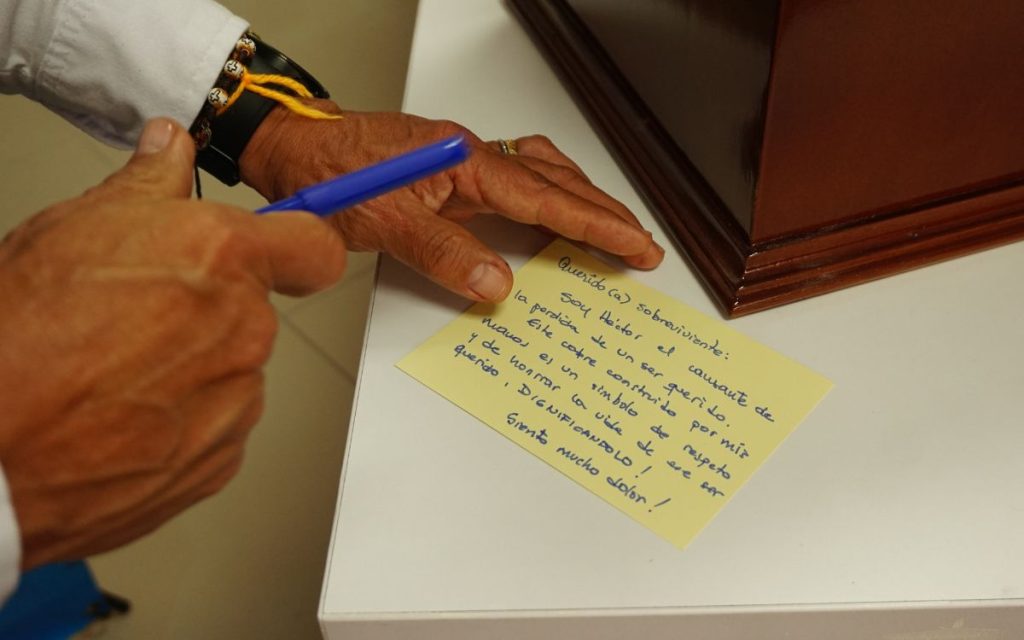 Querido(a) sobreviviente:
Soy Héctor el causante de
la perdida de un ser querido.
Este cofre construido por mis
manos es un simbolo de respeto
y de honrar la vida de ese ser
querido, DIGNIFICANDOLO!
Siento mucho dolor!